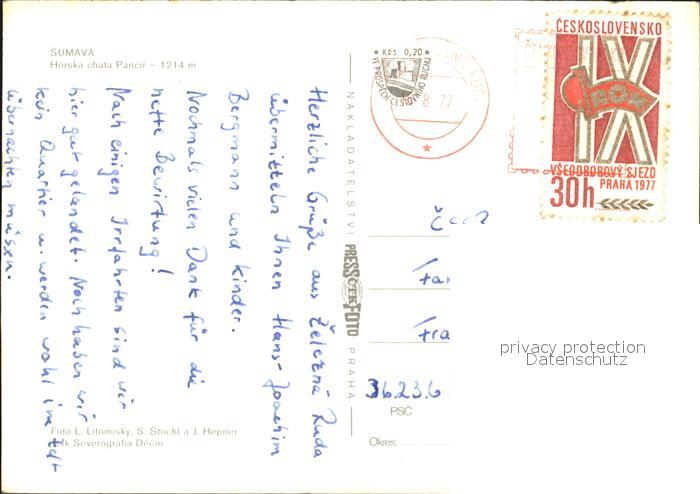 ŠUMAVA
Horská chata Pancíř – 1214 m
Herzliche Grüße aus Železná Ruda
übermitteln Ihnen Hans-Joachim
Bergmann und Kinder.
Nochmals vielen Dank für die
nette Bewirtung!
Nach einigen Irrfahrten sind wir
hier gut gelandet. Noch haben wir
kein Quartier u. werden wohl im Zelt
übernachten müssen.
Foto L. Litomisky, S. Štochl a J. Hepner
Severografia Děčín
NAKLADATELSTVÍ
PRESSFOTO
PRAHA
Kčs 0,20
VE PROSPĚCH CESTOVNÍHO RUCHU
8 77
ČESKOSLOVENSKO
IX
VŠEODBOROVÝ SJEZD
PRAHA 1977
30h
Fra
36236
PSČ
Okres:
privacy protection
Datenschutz